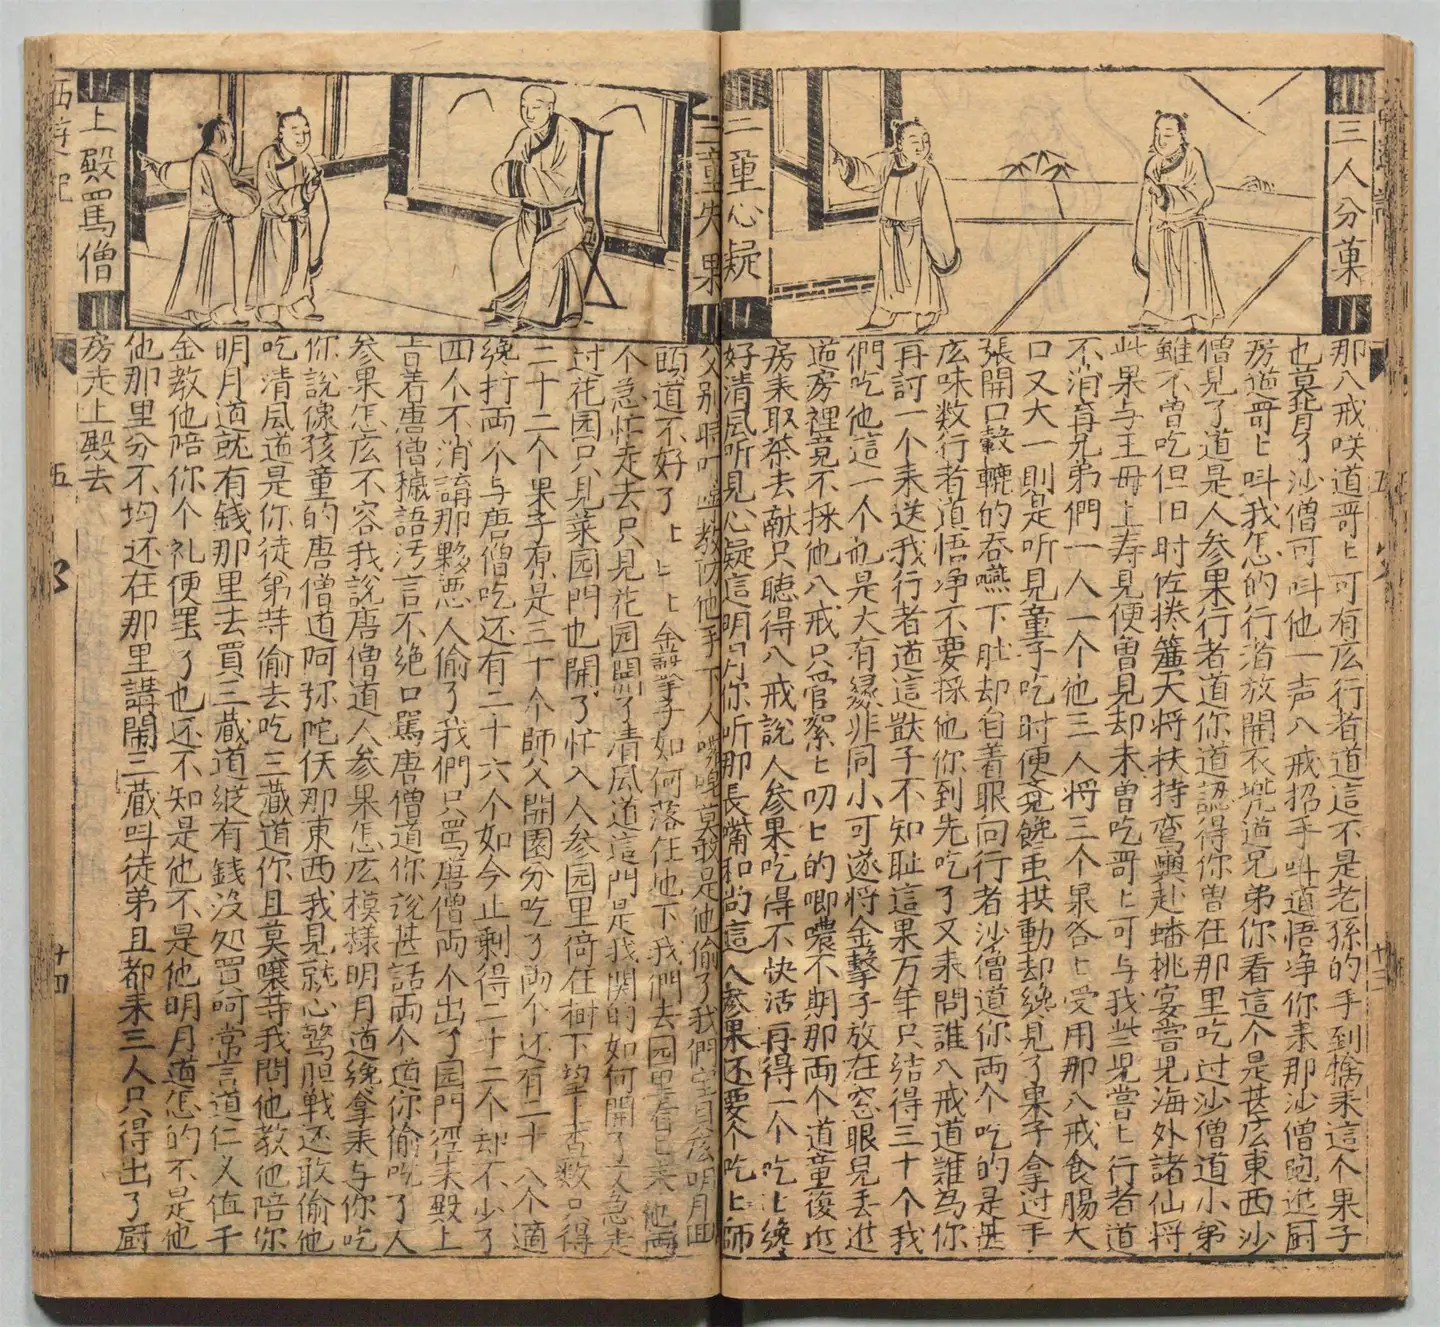 三人分菓
那八戒咲道哥〻可有庅行者道這不是老孫的手到擒来這个果子
也莫背了沙僧可呌他一声八戒招手呌道悟净你来那沙僧跑进厨
房道哥〻呌我怎的行者放開衣兠道兄弟你看這个是甚庅東西沙
僧見了道是人参果行者道你道認得你曽在那里吃过沙僧道小弟
雖不曽吃但旧时佐捲簾大将扶持鸾輿赴蟠挑宴嘗見海外諸仙将
此果与王母上寿見便曽見却未曽吃哥〻可与我些児嘗〻行者道
不消直兄弟們一人一个他三人将三个果各〻受用那八戒食腸大
口又大一則是听見童子吃时便覺饞虫拱動却纔見了果子拿过手
張開口轂轆的吞嚥下肚却白着眼向行者沙僧道你两个吃的是甚
庅味数行者道悟净不要採他你到先吃了又来問誰八戒道難為你
再討一个来送我行者道這獃子不知耻這果万年只结得三十个我
們吃他這一个也是大有縁非同小可遂将金擊子放在窓眼児丢进
道房裡竟不採他八戒只管絮〻叨〻的唧噥不期那两个道童復进
房来取茶去献只聴得八戒説人参果吃得不快活再得一个吃〻纔
好清風听見心疑道明月你听那長嘴和尚這人参果还要个吃〻師
二童心疑
二童失果
父别時叮嚀教防他手下人囉唣莫敢是他偷了我們宝貝庅明月回
頭道不好了〻〻〻金擊子如何落在地下我們去园里看已来他两
个急忙走去只見花园開了清風道這門是我関的如何開了又急走
过花园只見菜园門也開了忙入人参园里倚在樹下望上查数只得
二十二个果子原是三十个師父開園分吃了两个还有二十八个適
纔打两个与唐僧吃还有二十六个如今止剩得二十二个却不少了
四个不消講那夥悪人偷了我們只罵唐僧两个出了园門径来殿上
旨着唐僧穢語汚言不绝口罵唐僧道你説甚話两个道你偷吃了人
参果怎庅不容我説唐僧道人参果怎庅模様明月道纔拿来与你吃
你説像孩童的唐僧道阿弥陀伏那東西我見就心驚胆戦还敢偷他
吃清風道是你徒弟䓁偷去吃三蔵道你且莫嚷䓁我問他教他陪你
明月道就有銭那里去買三蔵道縦有銭没処買何常言道仁义值千
金教他陪你个礼便罢了也还不知是他不是他明月道怎的不是他
他那里分不均还在那里講閙三蔵呌徒弟且都来三人只得出了厨
房走上殿去
上殿罵僧
西遊記
五
十四